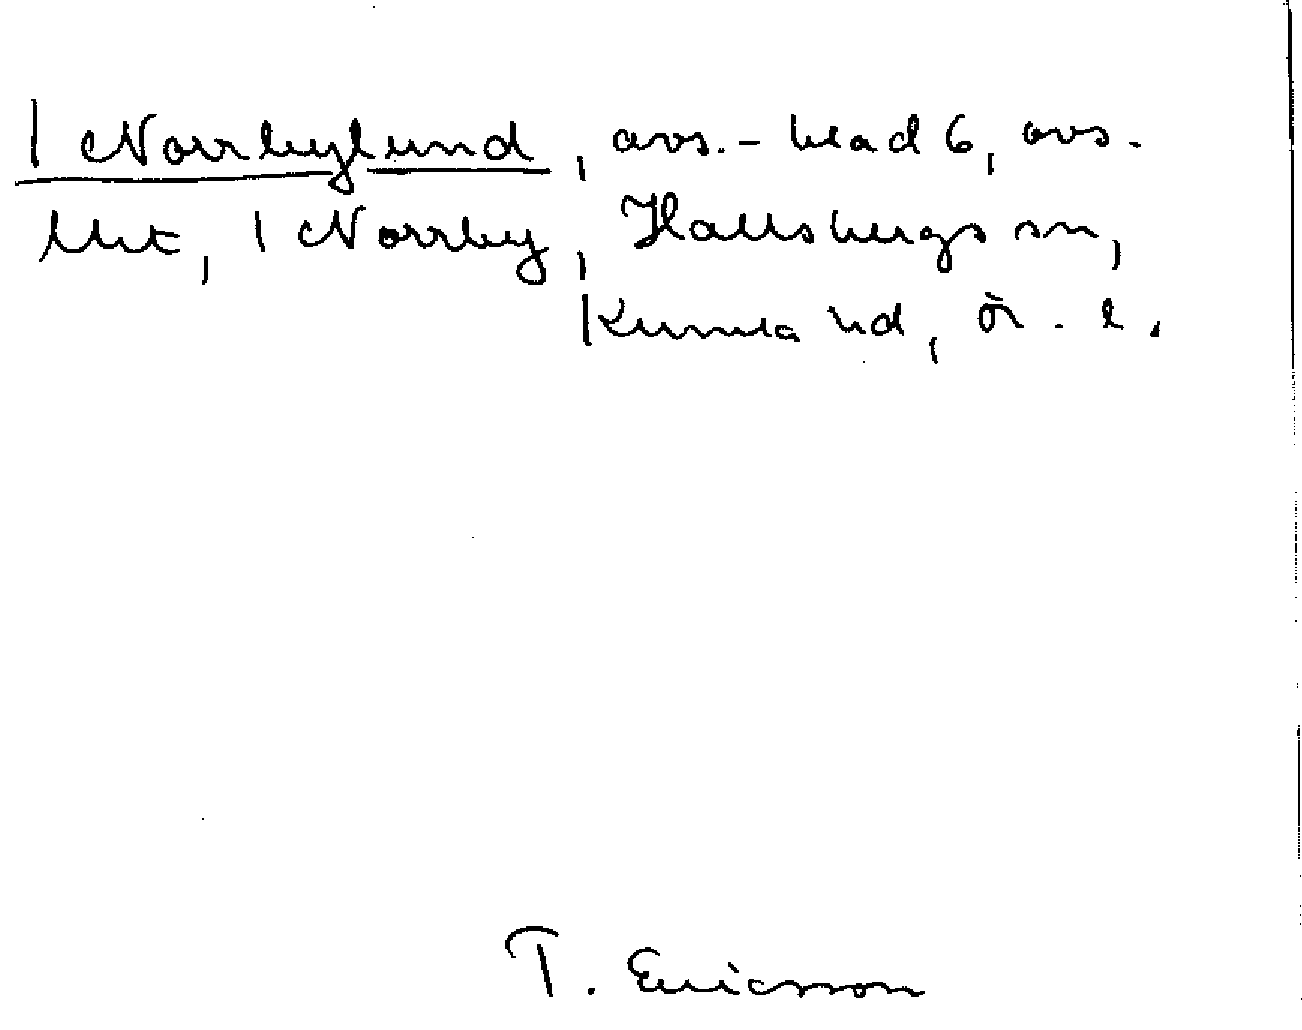 | Norrbylund, avs.-blad 6, avs.-
litt, | Norrby, Hallsbergs sn,
Kumla hd, Ör. l.
T. Ericsson